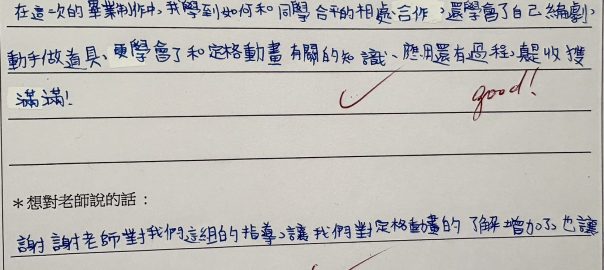 在這一次的畢業制作中,我學到如何和同學合平的相處、合作,還學會了自己編劇、
動手做道具、更學會了和定格動畫有關的知識、應用還有過程,真是收獲
滿滿!
good!
*想對老師說的話:
謝謝老師對我們這組的指導,讓我們對定格動畫的了解增加了,也讓